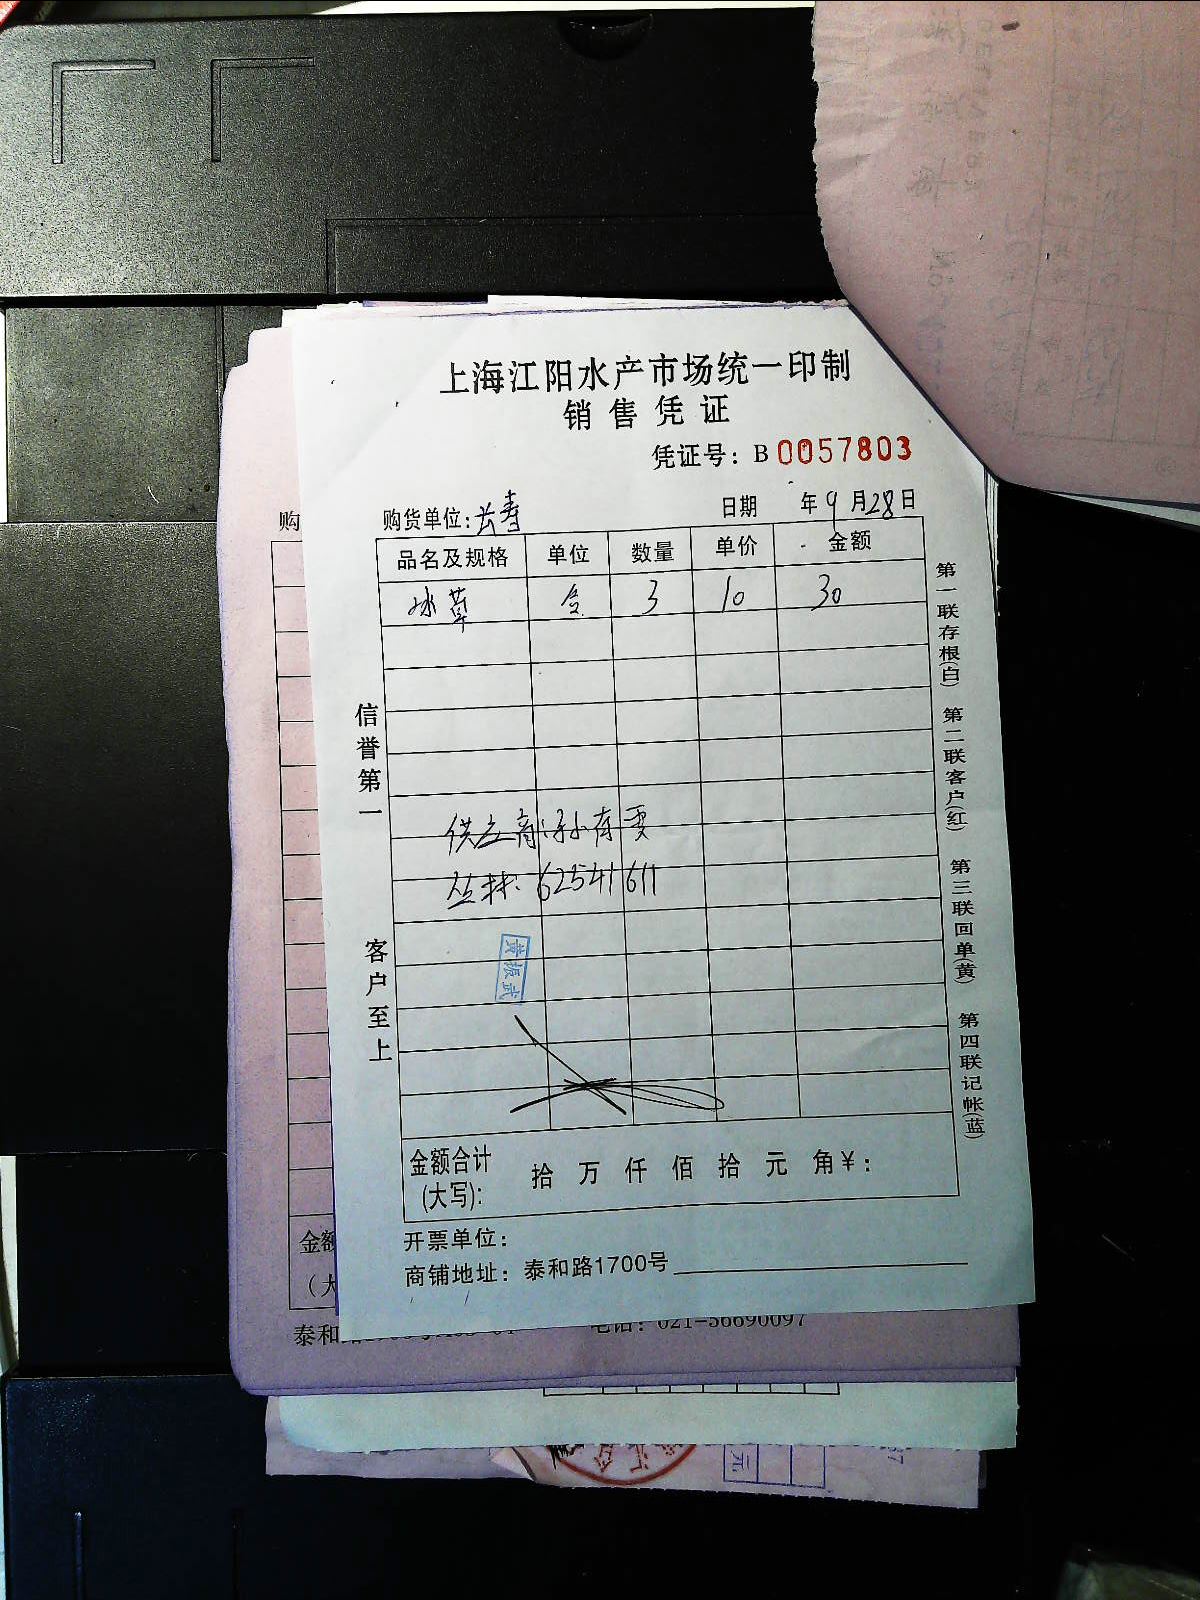 上海江阳水产市场统一印制
销售凭证
凭证号：B 0057803
购货单位:长寿 日期 年9月28日
品名及规格 单位 数量 单价 金额
冰草 盒 3 10 30
信誉第一
客户至上
供应商:孙存雯
丛林: 62541611
黄振武
金额合计(大写): 拾 万 仟 佰 拾 元 角 ¥:
开票单位：
商铺地址：泰和路1700号
第一联存根(白) 第二联客户(红) 第三联回单(黄) 第四联记帐(蓝)
购
金额
（大
泰和
电话：021-56690097
元